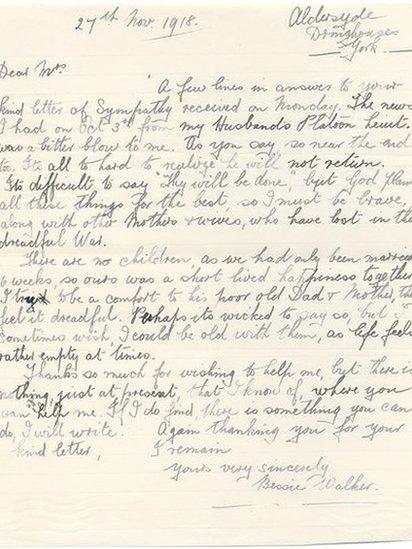 27th Nov 1918.
Aldersyde
Dringhouses
York.
Dear Mrs
A few lines in answer to your
kind letter of Sympathy received on Monday. The news
I had on Oct 3rd from my Husbands Platoon Lieut.
was a bitter blow to me. As you say, so near the end
too. Its all to hard to realize he will not return.
Its difficult to say "Thy will be done", but God plans
all these things for the best, so I must be brave,
along with other Mothers & wives, who have lost in this
dreadful War.
There are no children, as we had only been married
6 weeks, so ours was a short lived happiness together
I try to be a comfort to his poor old Dad & Mother, they
feel it dreadful. Perhaps its wicked to say so, but I
sometimes wish, I could be old with them, as life feels
rather empty at times.
Thanks so much for wishing to help one, but there is
nothing, just at present, that I know of, where you
can help me. If I do find, there is something you can
do, I will write. Again thanking you for your
kind letter, I remain
Yours very sincerely
Bessie Walker.